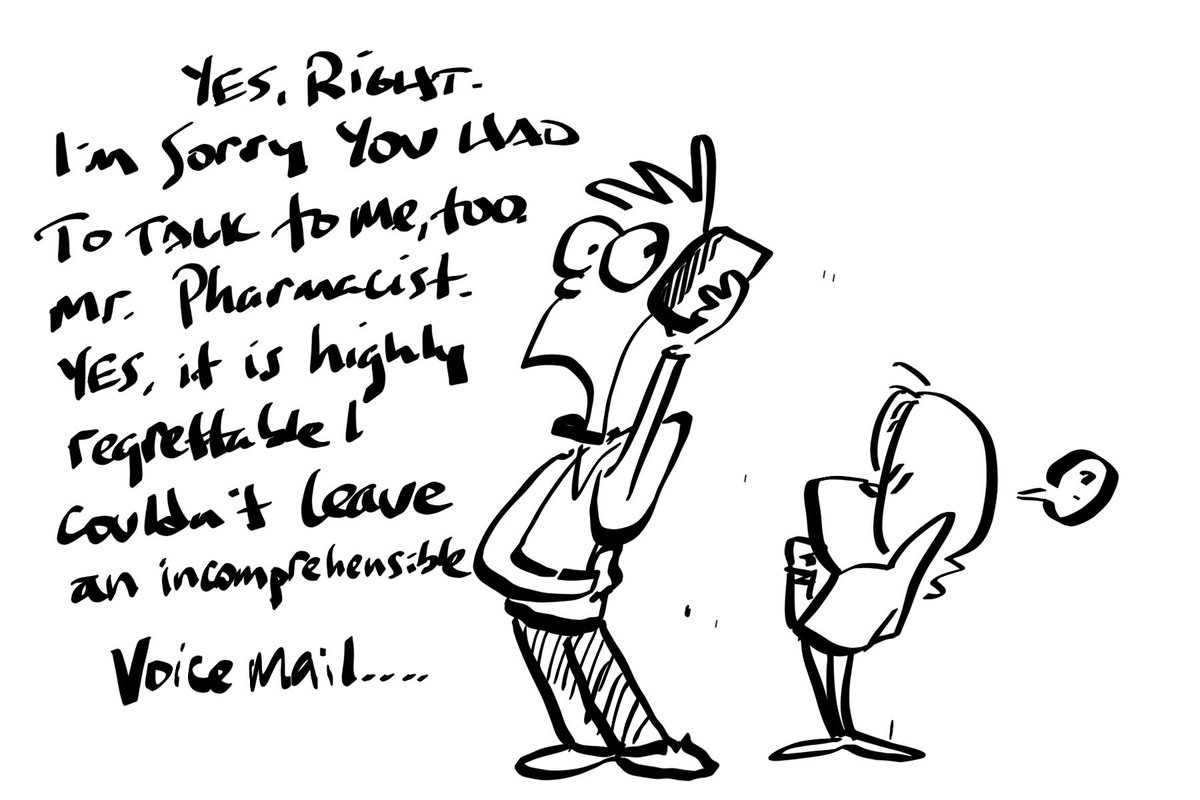 YES, RIGHT.
I'm Sorry YOU HAD
TO TALK to me, too.
Mr. Pharmacist.
YES, it is highly
regrettable I
couldn't leave
an incomprehensible
Voice mail....